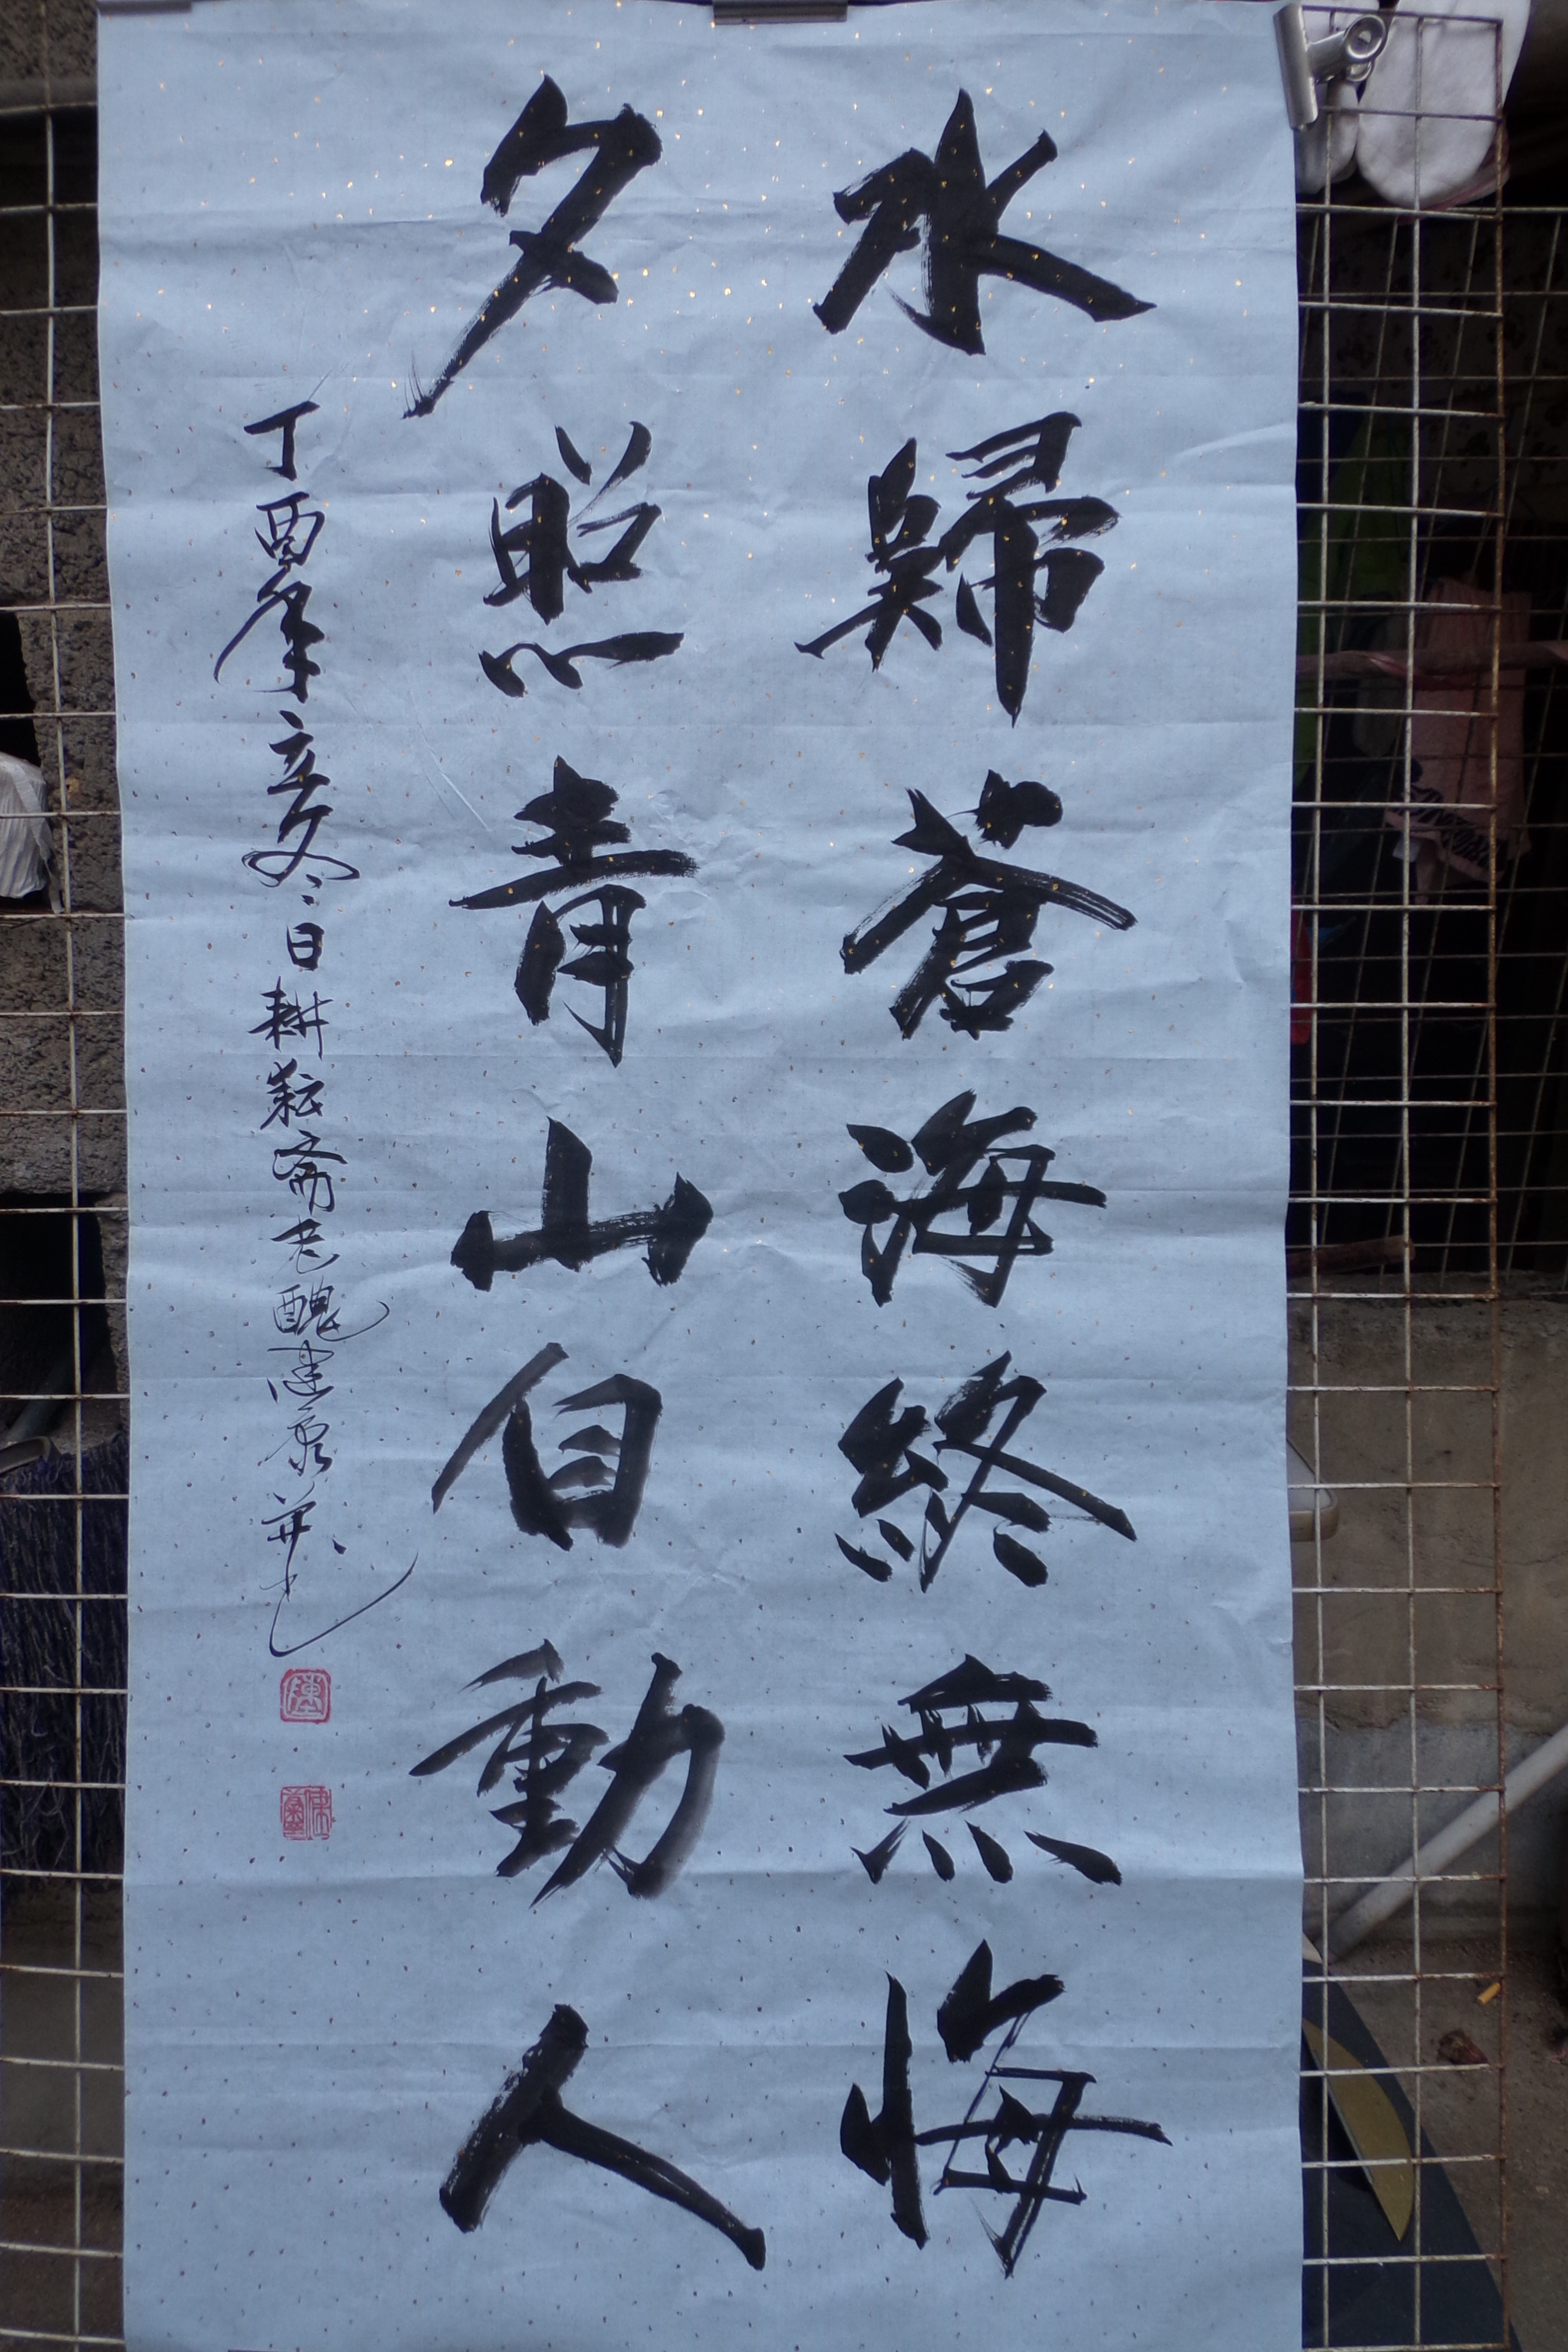 水歸蒼海終無悔
夕照青山自動人
丁酉年立冬日耕耘齋老醜建泉並書
陳